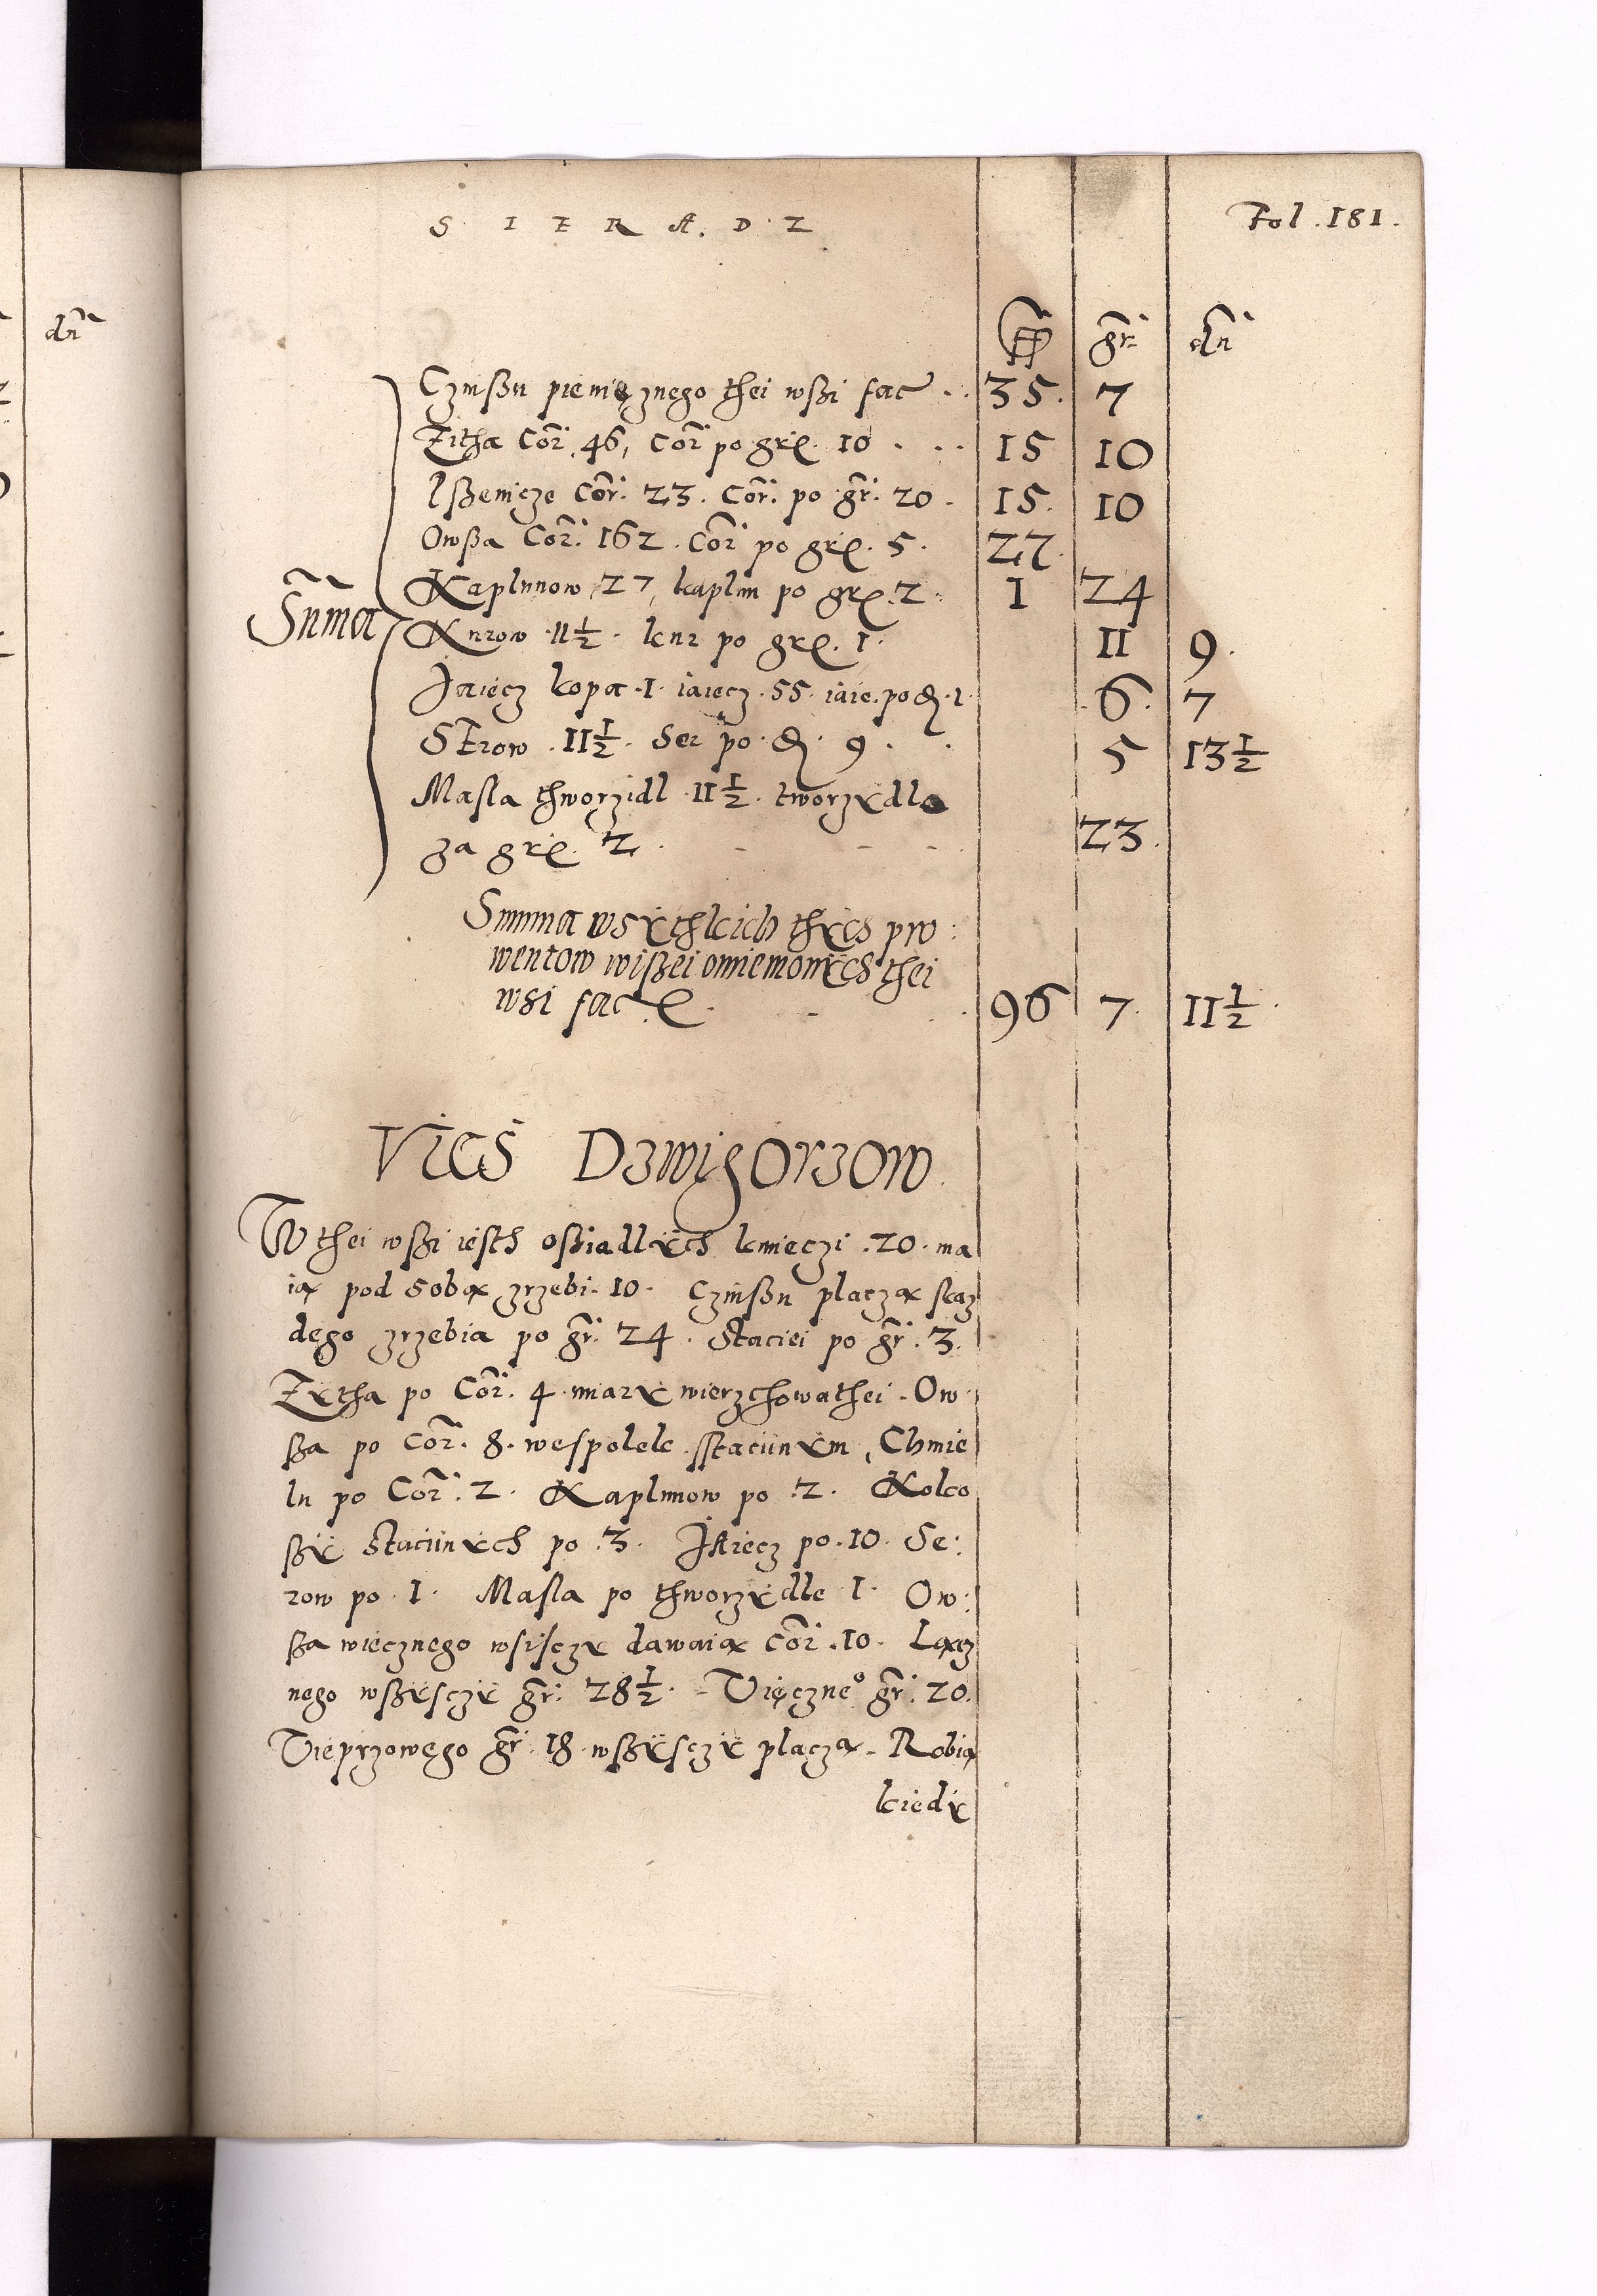 dn̄
S I E R A D Z
Fol. 181.
fl gr̄ dn̄
Czinßu pieniężnego thei wßi fac 35. 7
Zitha Cor̄. 46, Cor̄ po gr. 10 15 10
Pßenicze Cor̄. 23. Cor̄. po gr̄. 20 15. 10
Owßa Cor̄. 162. Cor̄ po gr. 5. 27.
Kaplunow 27, kaplun po gr. 2 1 24
Sūma
Kurow 11½. kur po gr. 1. 11 9.
Jaiecz kopa .1. iaiecz .55. iaie. po d. 1. 6. 7
SErow .11½. Ser po d. 9. 5 13½
Masla thworzidl 11½. tworzydlo
za gr. 2. 23.
Summa wsythkich thych pro:
wentow wißei omienionych thei
wsi fac. 96 7. 11½
Vies Dzwigorzow
W thei wßi iesth oßiadlych kmieczi .20. ma
ią pod sobą zrzebi. 10. Czinßu placzą skaz
dego zrzebia po gr̄. 24. Staciei po gr̄. 3.
Zytha po Cor̄. 4 miary wierzchowathei. Ow
ßa po Cor̄. 8. wespolek sstaciinym, Chmie
lu po Cor̄. 2. Kaplunow po .2. Koko
ßy staciinych po .3. JAiecz po .10. Se:
row po .1. Masla po thworzydle 1. Ow:
ßa wiecznego wsisczy dawaią Cor̄ .10. Łącz
nego wßysczy gr̄. 28½. Vięczne° gr̄. 20.
Vieprzowego gr̄. 18. wßysczy placzą. Robią
kiedy